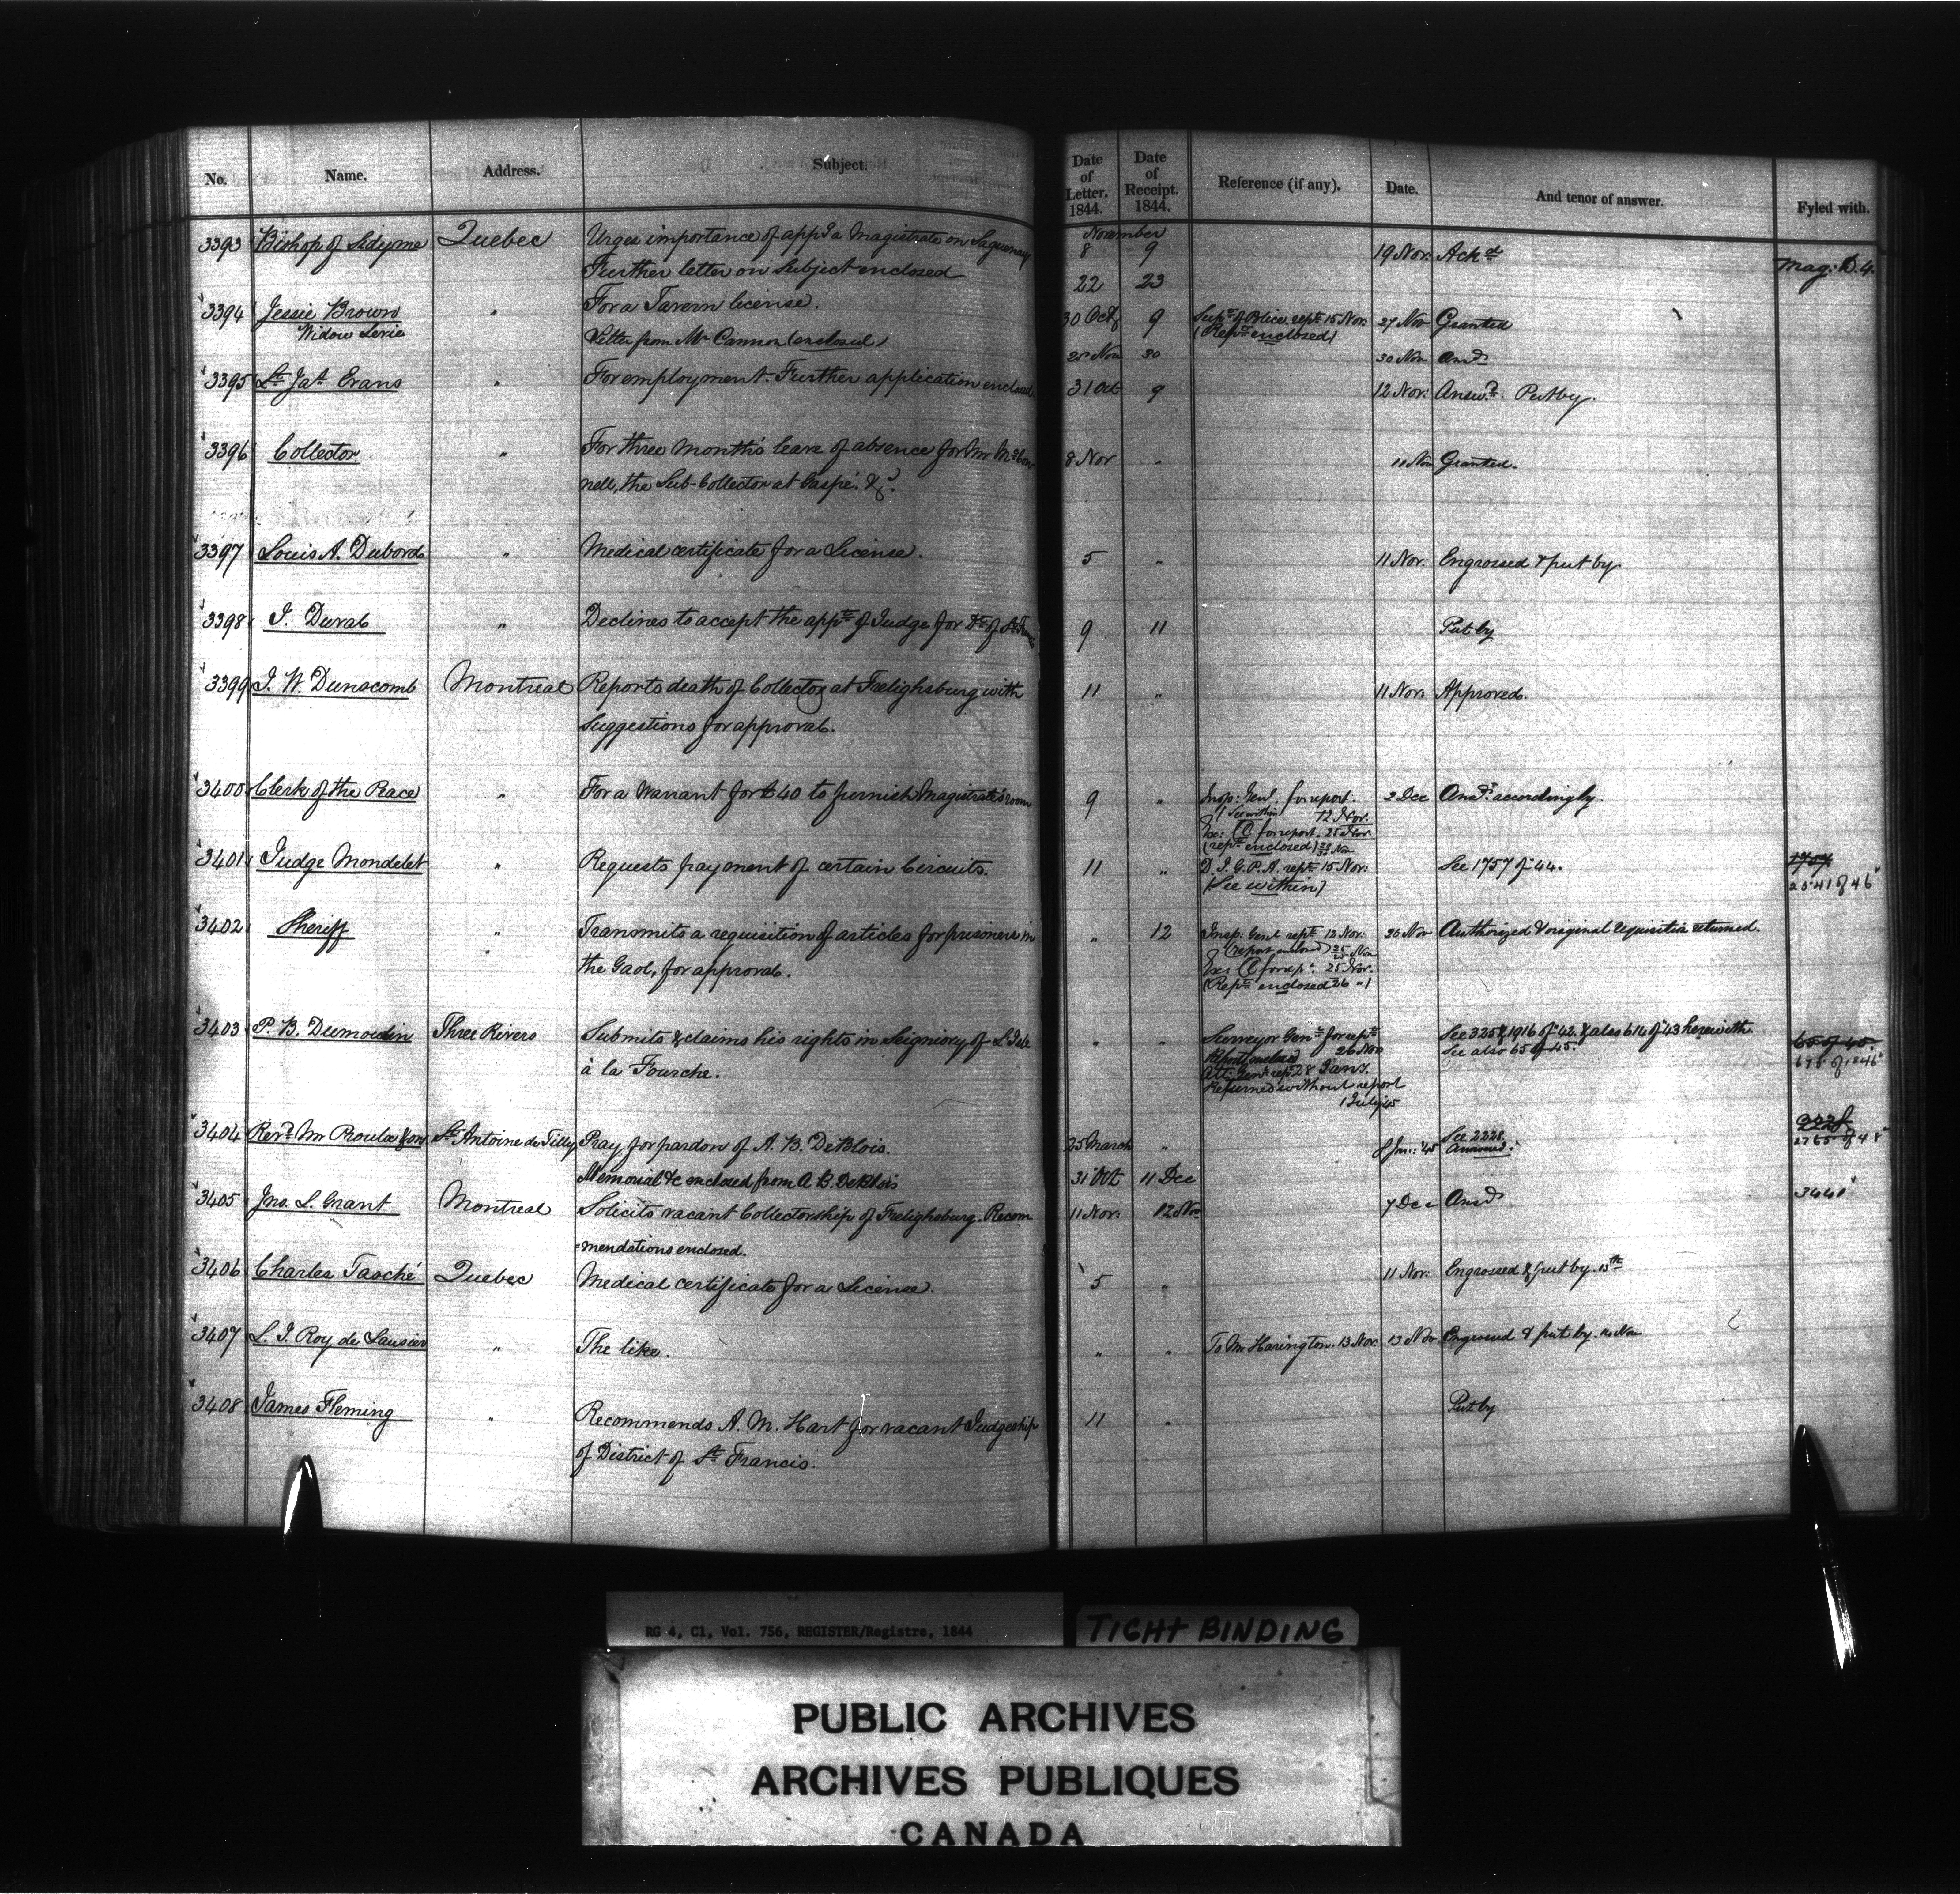 No. Name. Address. Subject. Date of Letter. 1844. Date of Receipt. 1844. Reference (if any). Date. And tenor of answer. Fyled with.
November
3393 Bishop of Sidyme Quebec Urges importance of appg a Magistrate on Saguenay 8 9 19 Nov: Ackd Mag: D. 4.
Further letter on Subject enclosed 22 23
3394 Jessie Brown " For a Tavern license. 30 Oct 9 Supt of Police rept 15 Nov. 27 Nov Granted
Widow Letter from Mr Cannon (enclosed) (Rept enclosed)
28 Nov 30 30 Nov Ansd
3395 Lt Jas Evans " For employment. Further application enclosed 31 Oct 9 12 Nov: Answd. Put by.
3396 Collector " For three Month's leave of absence for Mr McCon 8 Nov " 11 Nov Granted.
nell, the Sub-Collector at Gaspé. &c.
3397 Louis A. Dubord " Medical certificate for a License. 5 " 11 Nov: Engrossed & put by.
3398 J. Duval " Declines to accept the appt of Judge for Dt of St Francis 9 11 Put by
3399 J. W. Dunscomb Montreal Reports death of Collector at Frelighsburg with 11 " 11 Nov: Approved.
Suggestions for approval.
3400 Clerk of the Peace " For a Warrant for £40 to furnish Magistrate's room 9 " Insp: Genl. for report. 2 Dec Ansd. accordingly.
(See within) 12 Nov:
Ex: C for report. 25 Nov:
(rept enclosed)
3401 Judge Mondelet " Requests payment of certain Circuits. 11 " D. I. G. P. A. rept 15 Nov: See 1757 of 44. 1757
(See within) 2541 of 46
3402 Sheriff " Transmits a requisition of articles for prisoners in " 12 Insp: Genl rept 12 Nov: 26 Nov Authorized & original requisition returned.
the Gaol, for approval. (report enclosed) 25 Nov
Ex: C for rept. 25 Nov.
(Rept enclosed 26 ")
3403 P. B. Dumoulin Three Rivers Submits & claims his rights in Seigniory of L'Isle " " Surveyor Genl for rept 26 Nov See 325 & 1916 of 42. & also 614 of 43 herewith 65 of 45.
à la Fourche. Report enclosed See also 65 of 45. 695 of 1846
Att: Genl rept 28 Jany.
Returned without report
1 July 45
3404 Revd Mr Proulx St Antoine de Tilly Pray for pardon of A. B. DeBlois. 25 March " 8 Jan: '45 See 2228. 2228
Answered. 2765 of 48
Memorial &c enclosed from A B. DeBlois 31 Oct 11 Dec
3405 Jno. L. Grant Montreal Solicits vacant Collectorship of Frelighsburg. Recom 11 Nov: 12 Nov 7 Dec Ansd 3440
=mendations enclosed.
3406 Charles Taché Quebec Medical certificate for a License. 5 " 11 Nov: Engrossed & put by. 13th
3407 L. J. Roy de Lausier " The like. " " To Mr Harington. 13 Nov: 13 Nov Engrossed & put by. 14 Nov
3408 James Fleming " Recommends A. M. Hart for vacant Judgeship 11 " Put by
of District of St Francis.
RG 4, C1, Vol. 756, REGISTER/Registre, 1844
TIGHT BINDING
PUBLIC ARCHIVES
ARCHIVES PUBLIQUES
CANADA